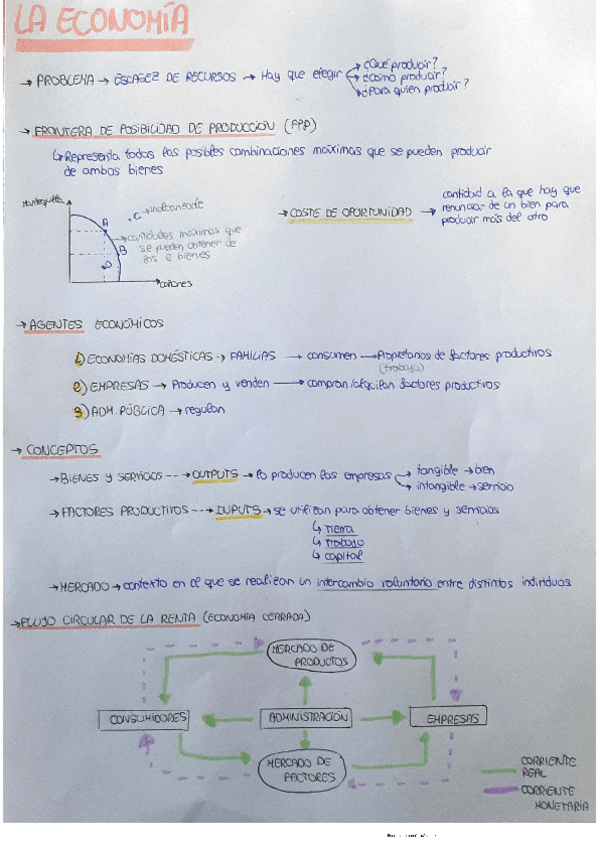 LA ECONOMÍA
→ PROBLEMA → ESCASEZ DE RECURSOS → Hay que elegir
¿Qué producir?
¿Cómo producir?
¿Para quien producir?
→ FRONTERA DE POSIBILIDAD DE PRODUCCION (FPP)
↳ Representa todas las posibles combinaciones máximas que se pueden producir
de ambos bienes
Mantequilla
C → inalcanzable
A
→ cantidades máximas que
se pueden obtener de
los 2 bienes
B
D
→ cañones
→ COSTE DE OPORTUNIDAD →
cantidad a la que hay que
renunciar de un bien para
producir más del otro
→ AGENTES ECONÓMICOS
1) ECONOMÍAS DOMÉSTICAS → FAMILIAS → consumen → Propietarios de factores productivos
(trabajo)
2) EMPRESAS → Producen y venden → compran/alquilan factores productivos
3) ADM. PÚBLICA → regulan
→ CONCEPTOS
→ BIENES Y SERVICIOS --→ OUTPUTS → lo producen las empresas
tangible → bien
intangible → servicio
→ FACTORES PRODUCTIVOS --→ INPUTS → se utilizan para obtener bienes y servicios
↳ tierra
↳ trabajo
↳ capital
→ MERCADO → contexto en el que se realizan un intercambio voluntario entre distintos individuos
→ FLUJO CIRCULAR DE LA RENTA (ECONOMÍA CERRADA)
MERCADO DE
PRODUCTOS
CONSUMIDORES
ADMINISTRACIÓN
EMPRESAS
MERCADO DE
FACTORES
CORRIENTE
REAL
CORRIENTE
MONETARIA